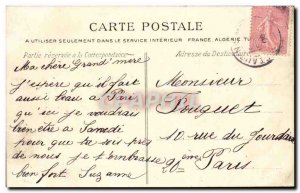 CARTE POSTALE
A UTILISER SEULEMENT DANS LE SERVICE INTÉRIEUR FRANCE, ALGÉRIE, TU
Partie réservée à la Correspondance
Adresse du Destinataire
Ma chère Grand'mère
j'espère qu'il fait
aussi beau à Paris
qu'ici je voudrais
bien être à Samedi
pour que tu sois près
de nous je t'embrasse
bien fort Suzanne
Monsieur
Fouquet
10 rue du Jourdain
20ème Paris